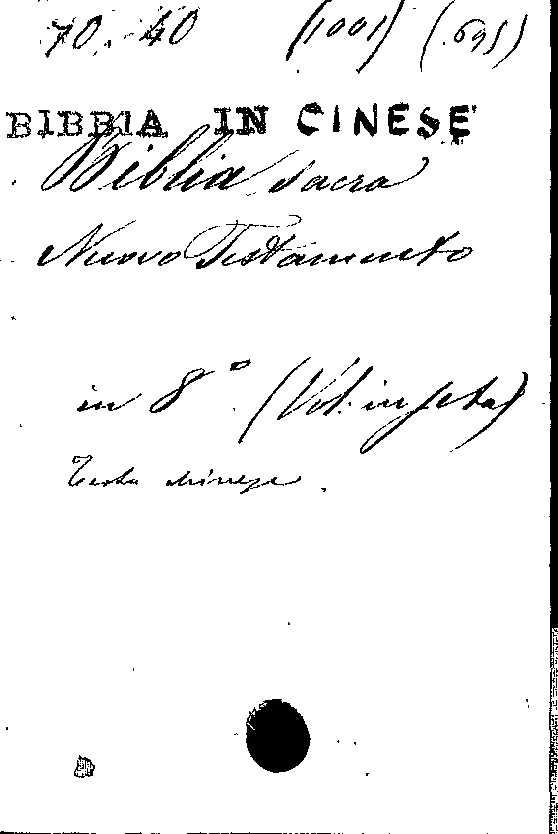 70. 40 (1001) (695)
BIBBIA IN CINESE
Biblia sacra
Nuovo Testamento
in 8° (Vol. in seta)
Testo chinese.